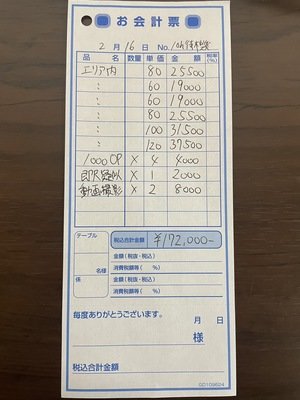 お会計票
2月16日 No.
品名 数量 単価 金額 税率(%)
エリア内 80 25500
: 60 19000
: 60 19000
: 80 25500
: 100 31500
: 120 37500
1000OP × 4 4000
即尺疑似 × 1 2000
動画撮影 × 2 8000
テーブル
名様
係
税込合計金額 ¥172,000-
金額(税抜・税込)
消費税額等( %)
金額(税抜・税込)
消費税額等( %)
毎度ありがとうございます。 月 日
様
税込合計金額